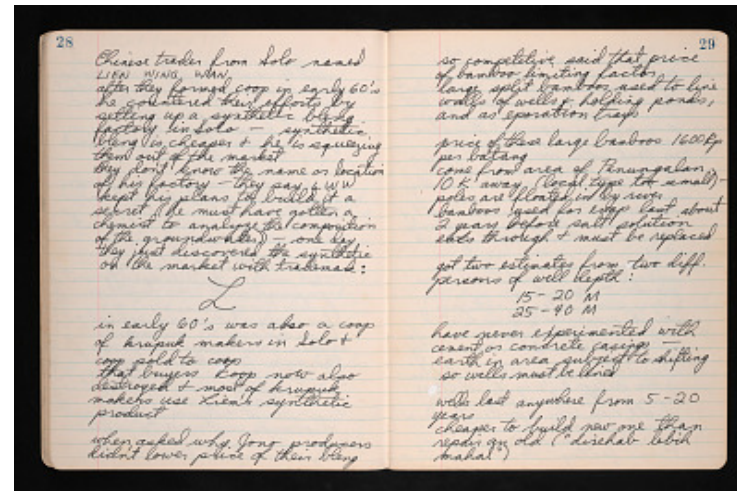 28
Chinese trader from Solo named
LIEN WING WAN
after they formed coop in early 60's
he countered their efforts by
setting up a synthetic bleng
factory in Solo — synthetic
bleng is cheaper & he is squeezing
them out of the market
they don't know the name or location
of his factory — they say LWW
kept his plans to build it a
secret (he must have gotten a
chemist to analyze the composition
of the groundwater) — one day
they just discovered the synthetic
on the market with trademark:
L
in early 60's was also a coop
of krupuk makers in Solo &
coop sold to coop
that buyers coop now also
destroyed & most of krupuk
makers use Lien's synthetic
product
when asked why Jono producers
didn't lower price of their bleng
29
so competitive, said that price
of bamboo limiting factor
large split bamboos used to line
walls of wells & holding ponds,
and as evporation trays
price of these large bamboos 1600 Rp
per batang
come from area of Penungalan
10 K away (local type too small) —
poles are floated in by river
bamboos used for evap last about
2 years before salt solution
eats through & must be replaced
got two estimates from two diff.
persons of well depth:
15 - 20 M
25 - 40 M
have never experimented with
cement or concrete casings —
earth in area subject to shifting
so wells must be lined
wells last anywhere from 5 - 20
years
cheaper to build new one than
repair an old ("direhab lebih
mahal")